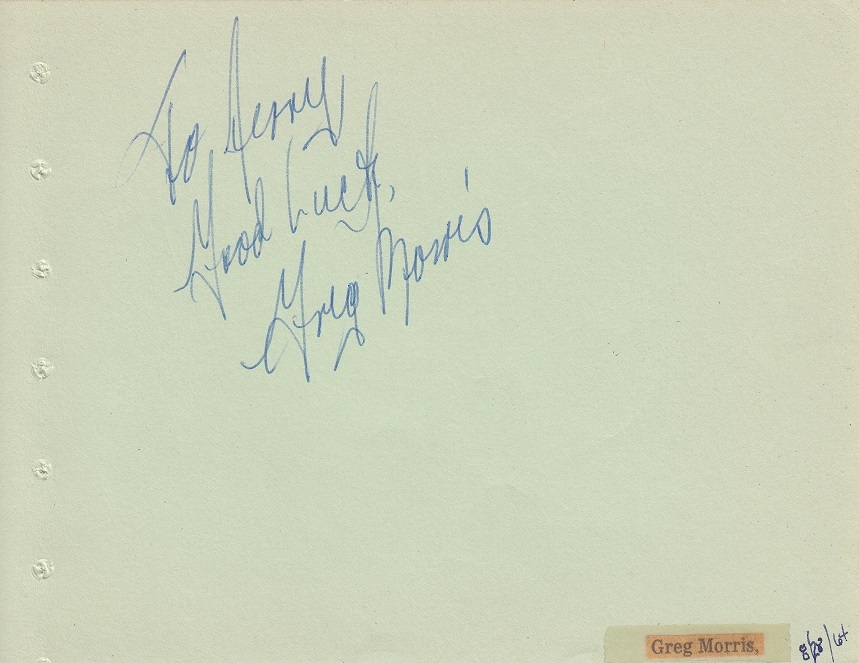 To Jerry
Good Luck,
Greg Morris
Greg Morris,
8/28/64